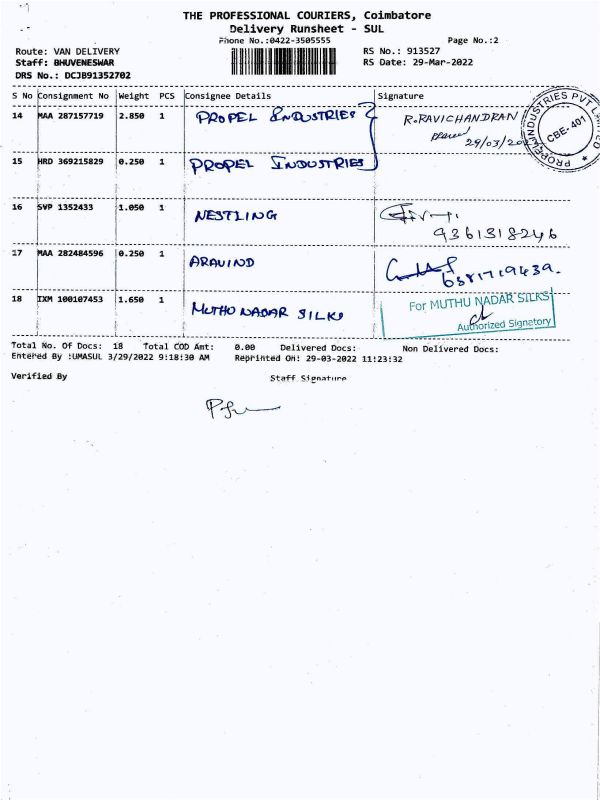 THE PROFESSIONAL COURIERS, Coimbatore
Delivery Runsheet - SUL
Phone No.:0422-3505555
Page No.:2
Route: VAN DELIVERY
RS No.: 913527
Staff: BHUVENESWAR
RS Date: 29-Mar-2022
DRS No.: DCJB91352702
S No Consignment No Weight PCS Consignee Details Signature
14 MAA 287157719 2.850 1 PROPEL INDUSTRIES R.RAVICHANDRAN
29/03/2022
PROPEL INDUSTRIES PVT LIMITED
CBE-401
15 HRD 369215829 0.250 1 PROPEL INDUSTRIES
16 SVP 1352433 1.050 1 NESTLING
9361318246
17 MAA 282484596 0.250 1 ARAVIND
6381719439.
18 IXM 100107453 1.650 1 MUTHU NADAR SILKS
For MUTHU NADAR SILKS
Authorized Signatory
Total No. Of Docs: 18 Total COD Amt: 0.00 Delivered Docs: Non Delivered Docs:
Entered By :UMASUL 3/29/2022 9:18:30 AM Reprinted On: 29-03-2022 11:23:32
Verified By Staff Signature